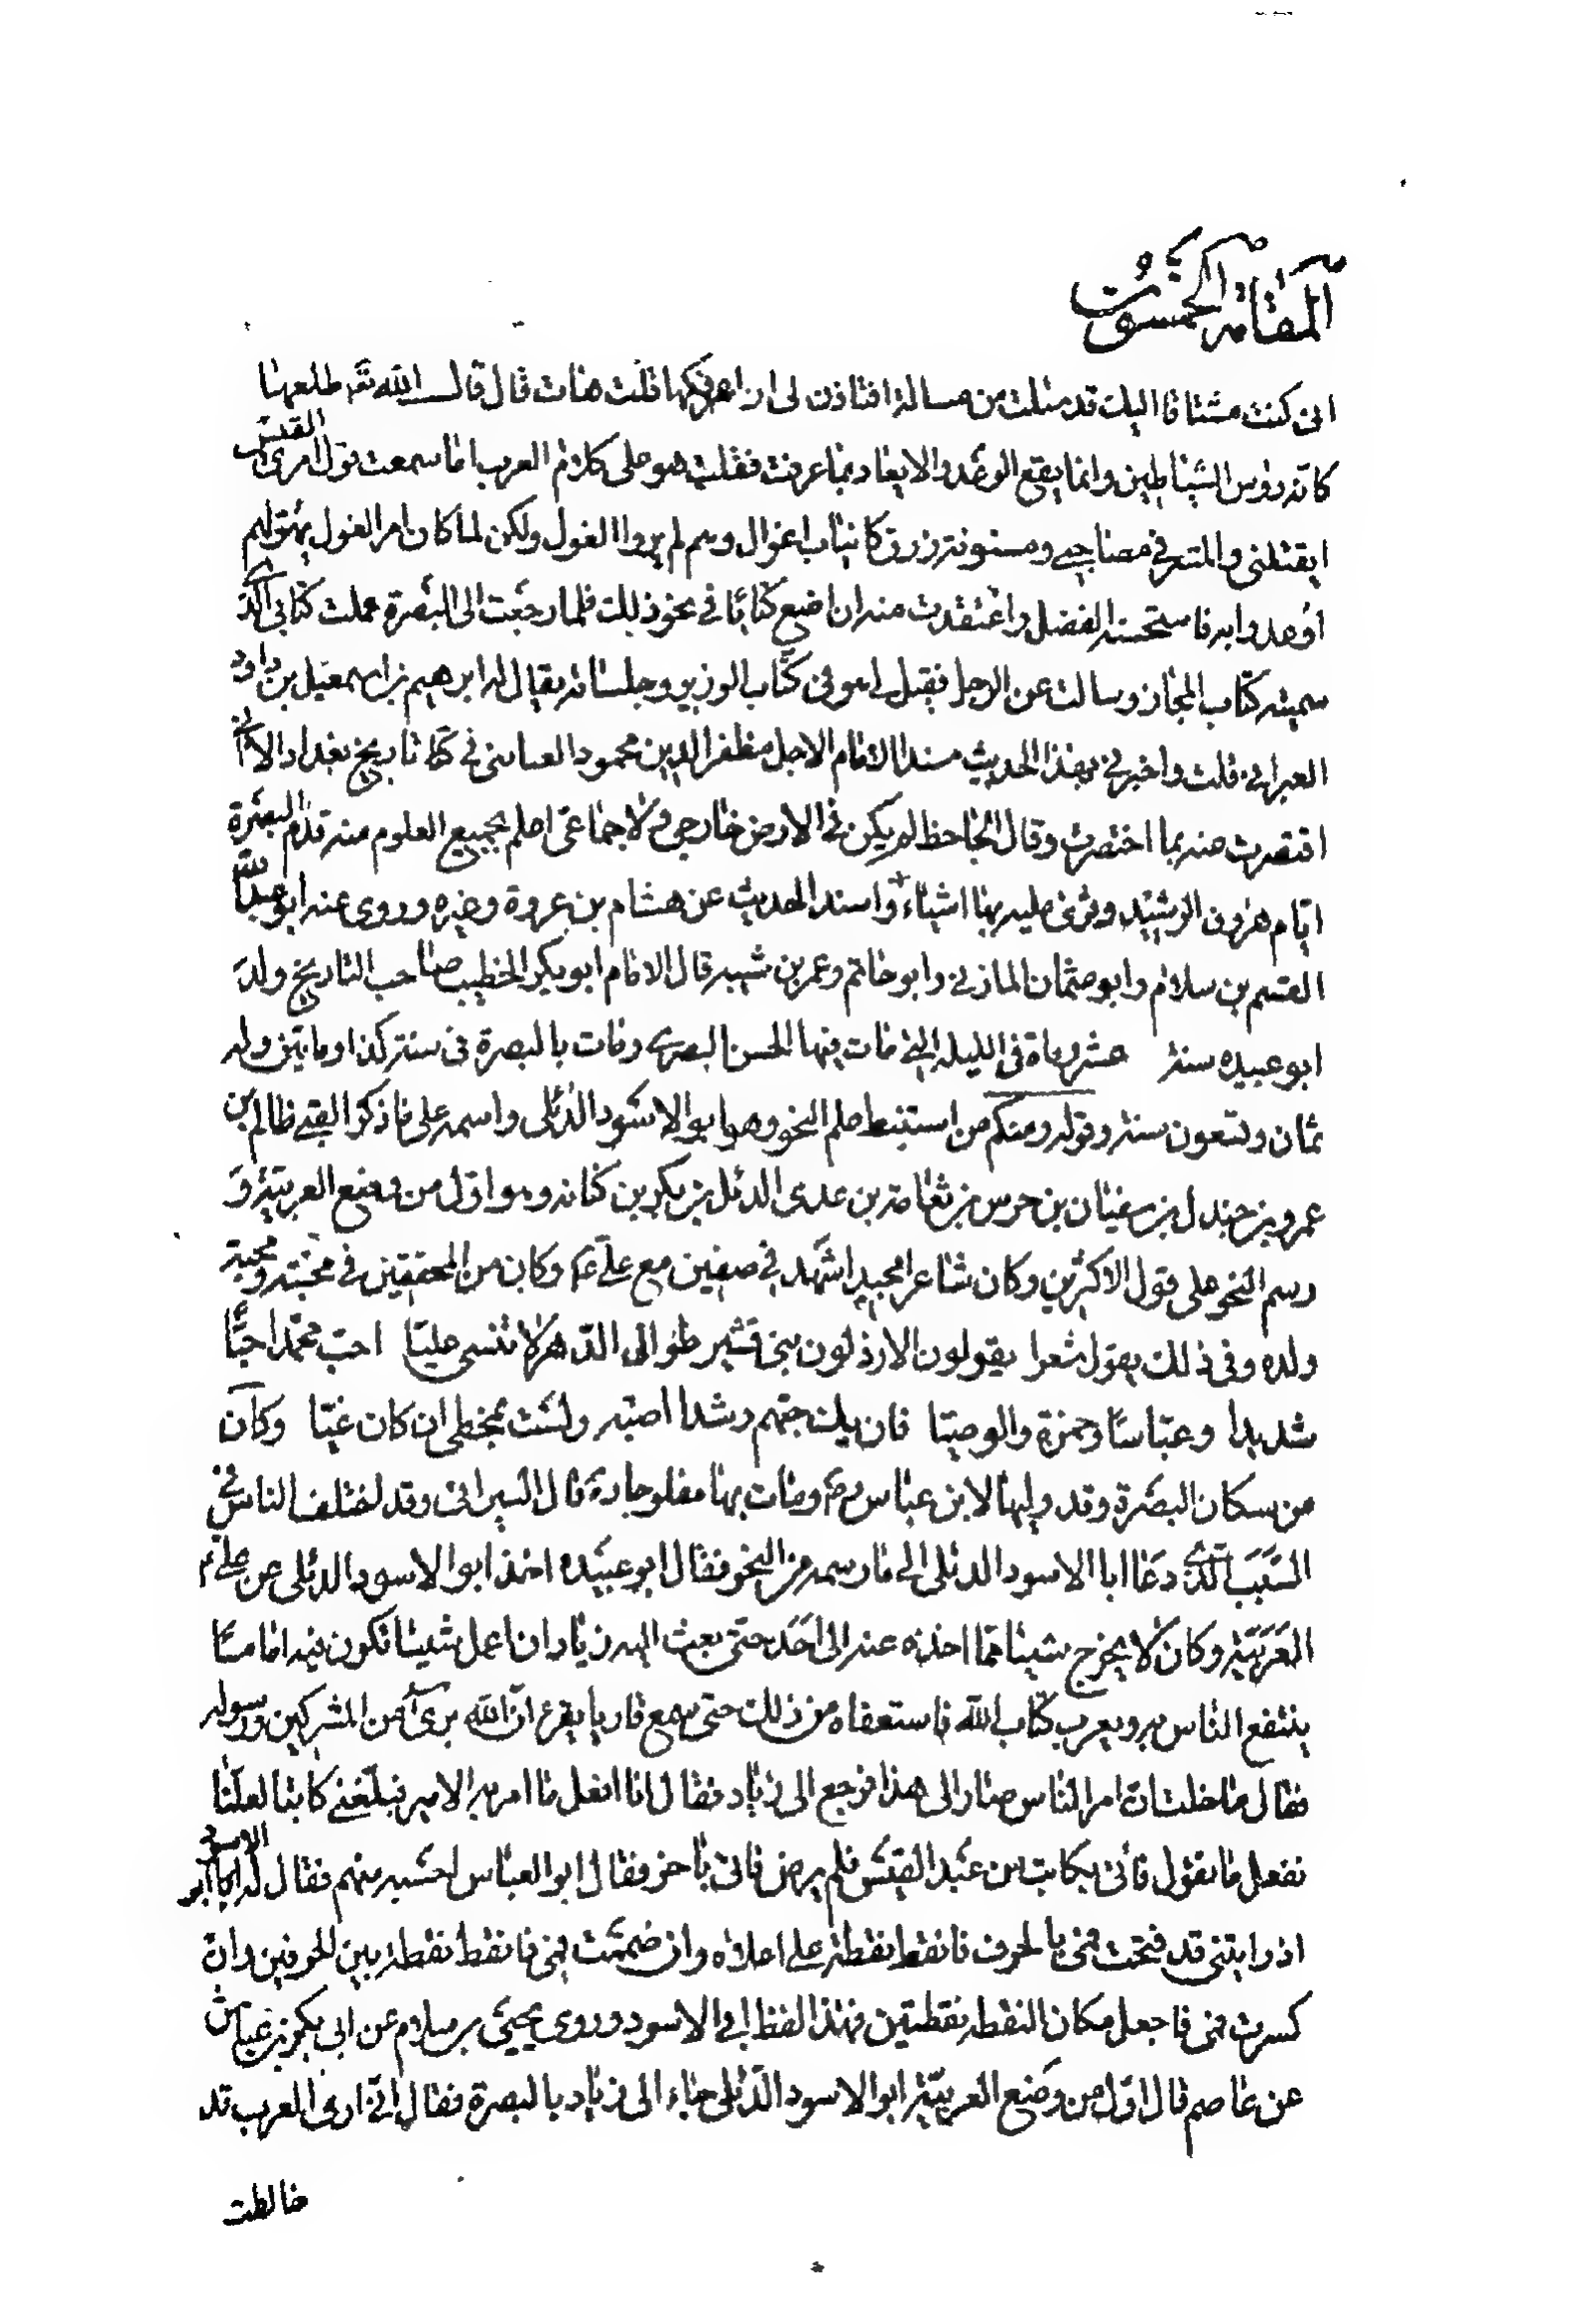 المقامة الخمسون
انى كنت مشتاقا اليك قد سئلت من مسالة افتاذن لى ان اعرفكها قلت هات قال قال الله تعه طلعها
كانه رؤس الشياطين وانما يقع الوعد والايعاد بما عرفت فقلت هو على كلام العرب اما سمعت قول امرى القيس
ايقتلنى والمشرفي مضاجعي ومسنونة زرق كانياب اغوال وهم لم يروا الغول ولكن لما كان امر الغول يهولهم
اوعدوا به فاستحسنه الفضل واعتقدت منه ان اضع كتابا في نحو ذلك فلما رجعت الى البصرة عملت كتابى الذى
سميته كتاب المجاز وسالت عن الرجل فقيل لي هو فى كتاب الوزير وجلسائه يقال له ابرهيم بن اسمعيل بن داود
العبرانى قلت واخبرنى بهذا الحديث مسندا الامام الاجل مظفر الدين محمود العباسى فى تاريخ بغداد الا انى
اقتصرت منه بما اختصرت وقال الجاحظ لم يكن في الارض خارجى ولا جماعى اعلم بجميع العلوم منه قدم البصرة
ايام هرون الرشيد وقرئ عليه بها اشياء واسند الحديث عن هشام بن عروة وغيره وروى عنه ابو عبدالله
القسم بن سلام وابو عثمان المازنى وابو حاتم وعمر بن شيبه قال الامام ابو بكر الخطيب صاحب التاريخ ولد
ابو عبيده سنة عشر وماة فى الليلة التى مات فيها الحسن البصرى ومات بالبصرة فى سنة كذا وماتين وله
ثمان وتسعون سنة وقوله ومنكم من استنبط علم النحو وهو ابو الاسود الدئلى واسمه على ما ذكر القتبى ظالم بن
عمرو بن جندل بن سفيان بن حرس بن ثعاصة بن عدى الدئل بن بكر بن كنانه وهو اول من وضع العربية و
رسم النحو على قول الاكثرين وكان شاعرا مجيدا شهد في صفين مع على عم وكان من المحققين فى محبته ومحبة
ولده وفى ذلك يقول شعرا يقولون الارذلون بنى قشير طوال الدهر لا تنسى عليا احب محمدا حبا
شديدا وعباسا وحمزة والوصيا فان يك حبهم رشدا اصبه ولست بمخطى ان كان غيا وكان
من سكان البصرة وقد وليها لابن عباس رضه ومات بها مفلوجا قال السيرافى وقد اختلف الناس فى
السبب الذى دعا ابا الاسود الدئلى الى ما رسمه من النحو فقال ابو عبيده اخذ ابو الاسود الدئلى عن على عم
العربية وكان لا يخرج شيئا مما اخذه عنه الى احد حتى بعث اليه زياد ان اعمل شيئا تكون فيه اماما
ينتفع الناس به ويعرب كتاب الله فاستعفاه من ذلك حتى سمع قاريا يقرء ان الله برئ من المشركين ورسوله
فقال ما ظننت ان امر الناس صار الى هذا فرجع الى زياد فقال انا افعل ما امر به الامير فبلغنى كاتبا لعلنا
نفعل ما نقول فاتى بكاتب من عبد القيس فلم يرض فاتى باخر فقال ابو العباس احسبه منهم فقال له ابو الاسود
اذ رايتنى قد فتحت فمى بالحرف فانقط نقطة على اعلاه وان ضممت فمى فانقط نقطة بين الحرفين وان
كسرت فمى فاجعل مكان النقطة نقطتين فهذا لفظ ابى الاسود وروى يحيى بن سلام عن ابى بكر بن عياش
عن عاصم قال اول من وضع العربية ابو الاسود الدئلى جاء الى زياد بالبصرة فقال انى ارى العرب قد
خالطت